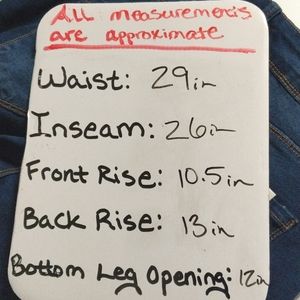 All measurements
are approximate
Waist: 29in
Inseam: 26in
Front Rise: 10.5in
Back Rise: 13in
Bottom Leg Opening: 12in